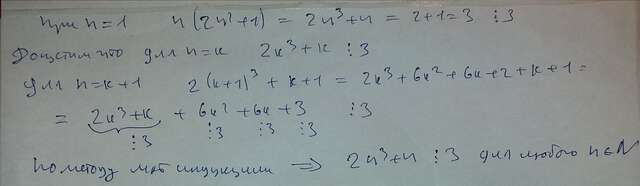 При n=1 n(2n²+1) = 2n³+n = 2+1=3 ⋮3
Допустим что для n=k 2k³+k ⋮3
Для n=k+1 2(k+1)³ + k+1 = 2k³+6k²+6k+2+k+1=
= 2k³+k + 6k²+6k+3 ⋮3
⋮3 ⋮3 ⋮3 ⋮3
по методу мат индукции ⟹ 2n³+n ⋮3 для любого n∈N